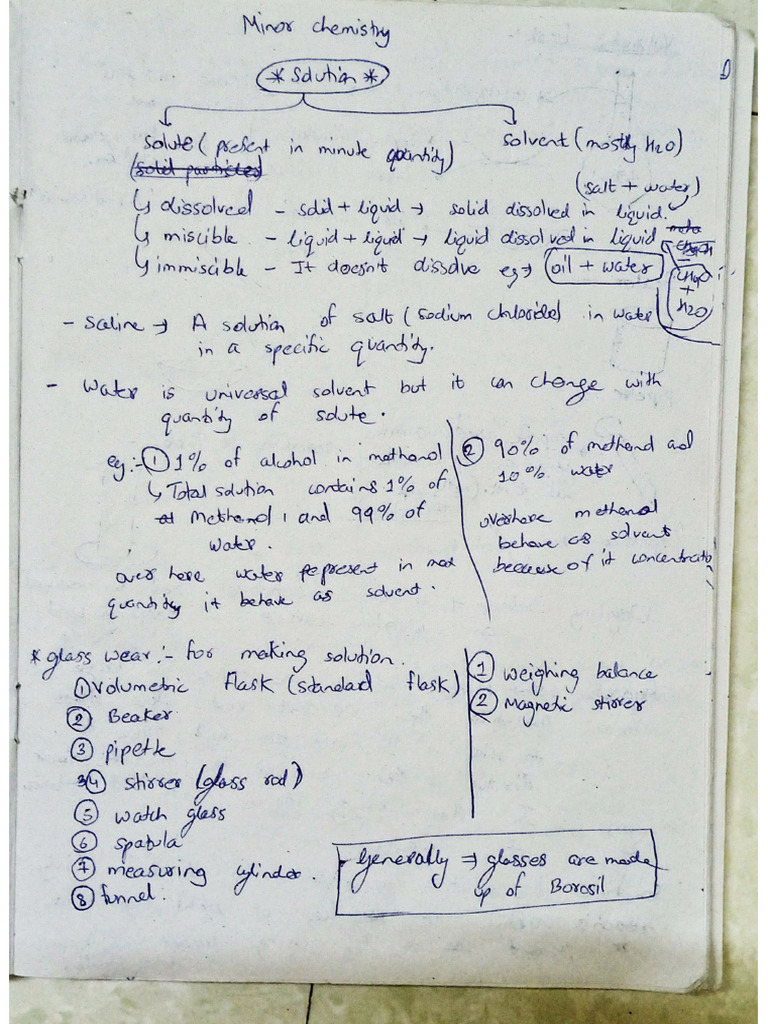 Minor chemistry
* Solution *
solute (present in minute quantity)
solvent (mostly H2O)
(solid particles)
(salt + water)
↳ dissolved - solid + liquid → solid dissolved in liquid.
↳ miscible - liquid + liquid → liquid dissolved in liquid
↳ immiscible - It doesn't dissolve eg → oil + water
+
H2O
- Saline → A solution of salt (sodium chloride) in water
in a specific quantity.
- Water is universal solvent but it can change with
quantity of solute.
eg:- ① 1% of alcohol in methanol
↳ Total solution contains 1% of
Methanol, and 99% of
water.
over here water represent in max
quantity it behave as solvent.
② 90% of methanol and
10% water
overhere methanol
behave as solvent
because of it concentratio
* glass wear:- for making solution.
① Volumetric Flask (standard flask)
② Beaker
③ pipette
④ stirrer (glass rod)
⑤ watch glass
⑥ spatula
⑦ measuring cylinder.
⑧ funnel.
① weighing balance
② Magnetic stirrer
• Generally ⇒ glasses are made
up of Borosil